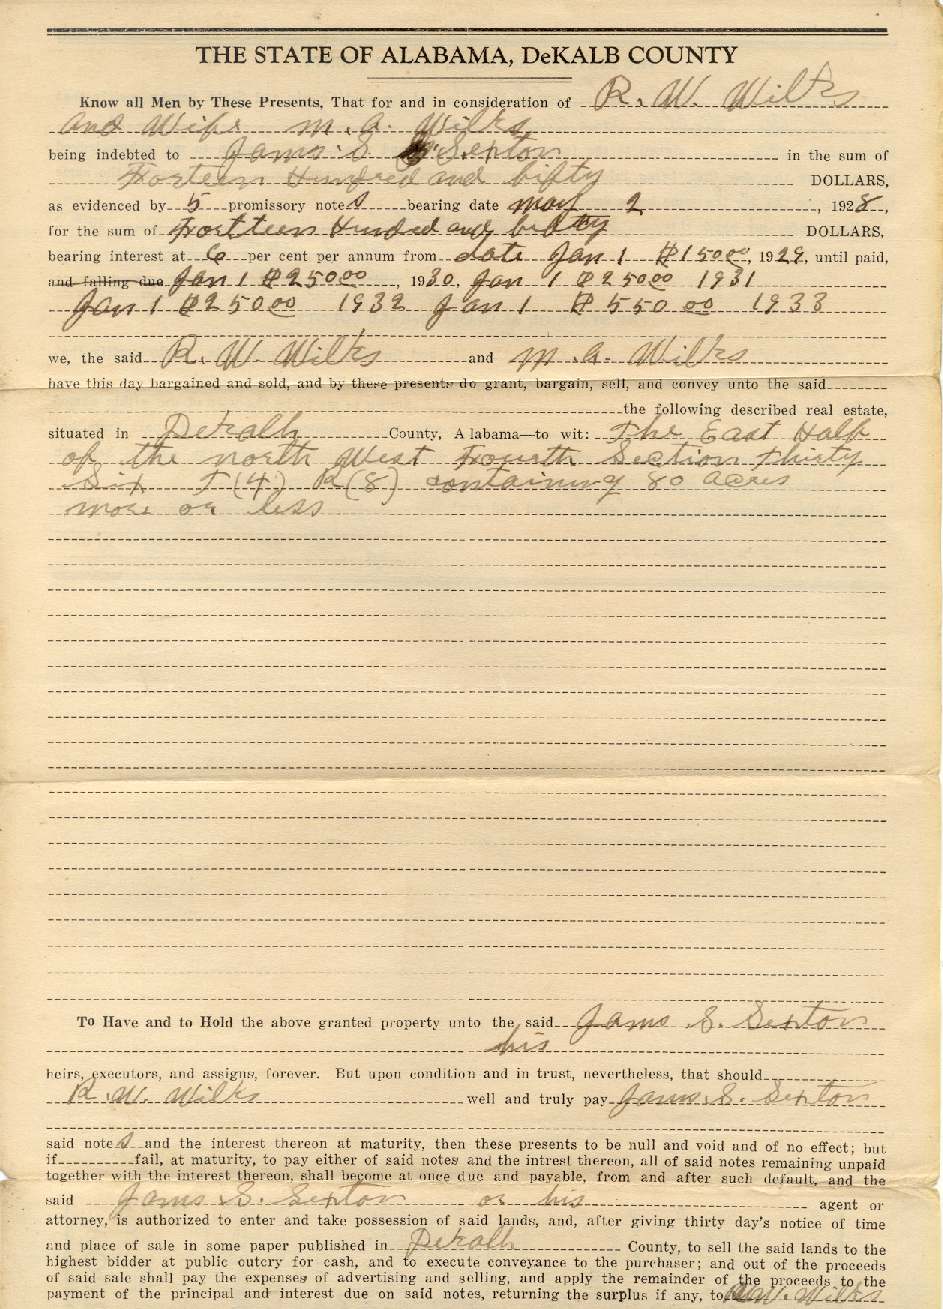 THE STATE OF ALABAMA, DeKALB COUNTY
Know all Men by These Presents, That for and in consideration of R. W. Wilks
and Wife M. A. Wilks
being indebted to Jams. S. Sexton in the sum of
Forteen Hundred and fifty DOLLARS,
as evidenced by 5 promissory notes bearing date may 2, 1928,
for the sum of Fortteen Hundred and fifty DOLLARS,
bearing interest at 6 per cent per annum from date Jan 1 $150.00, 1929, until paid,
and falling due Jan 1 $250.00, 1930, Jan 1 $250.00 1931
Jan 1 $250.00 1932 Jan 1 $550.00 1933
we, the said R. W. Wilks and M. A. Wilks
have this day bargained and sold, and by these presents do grant, bargain, sell, and convey unto the said
the following described real estate,
situated in Dekalb County, Alabama—to wit: The East Half
of the north West Fourth Section Thirty
Six T(4) R(8) containing 80 acres
more or less
To Have and to Hold the above granted property unto the said Jams S. Sexton
his
heirs, executors, and assigns, forever. But upon condition and in trust, nevertheless, that should
R. W. Wilks well and truly pay Jams. S. Sexton
said notes and the interest thereon at maturity, then these presents to be null and void and of no effect; but
if fail, at maturity, to pay either of said notes and the intrest thereon, all of said notes remaining unpaid
together with the interest thereon, shall become at once due and payable, from and after such default, and the
said Jams S. Sexton or his agent or
attorney, is authorized to enter and take possession of said lands, and, after giving thirty day's notice of time
and place of sale in some paper published in Dekalb County, to sell the said lands to the
highest bidder at public outcry for cash, and to execute conveyance to the purchaser; and out of the proceeds
of said sale shall pay the expenses of advertising and selling, and apply the remainder of the proceeds to the
payment of the principal and interest due on said notes, returning the surplus if any, to R.W. Wilks